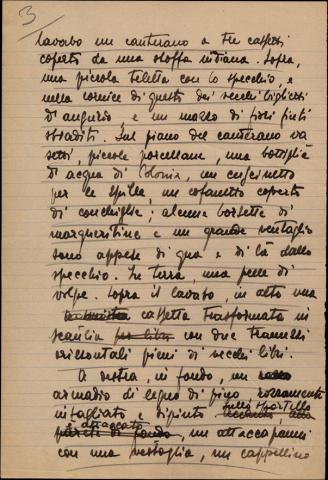 3
lavabo un canterano a tre cassetti
coperto da una stoffa indiana. Sopra,
una piccola teletta con lo specchio, e
nella cornice di questo dei vecchi biglietti
di augurio, e un mazzo di fiori finti
sbiaditi. Sul piano del canterano va
setti, piccole porcellane, una bottiglia
di acqua di Colonia, un cuscinetto
per le spille, un cofanetto coperto
di conchiglie; alcune borsette di
margheritine e un grande ventaglio
sono appese di qua e di là dallo
specchio. In terra, una pelle di
volpe. Sopra il lavabo, in alto una
cassetta trasformata in
scansia per libri con due tramezzi
orizzontali pieni di vecchi libri.
A destra, in fondo, un
armadio di legno di pino rozzamente
intagliato e dipinto sullo sportello
è attaccato
parete di fondo, un attaccapanni
con una vestaglia, un cappellino